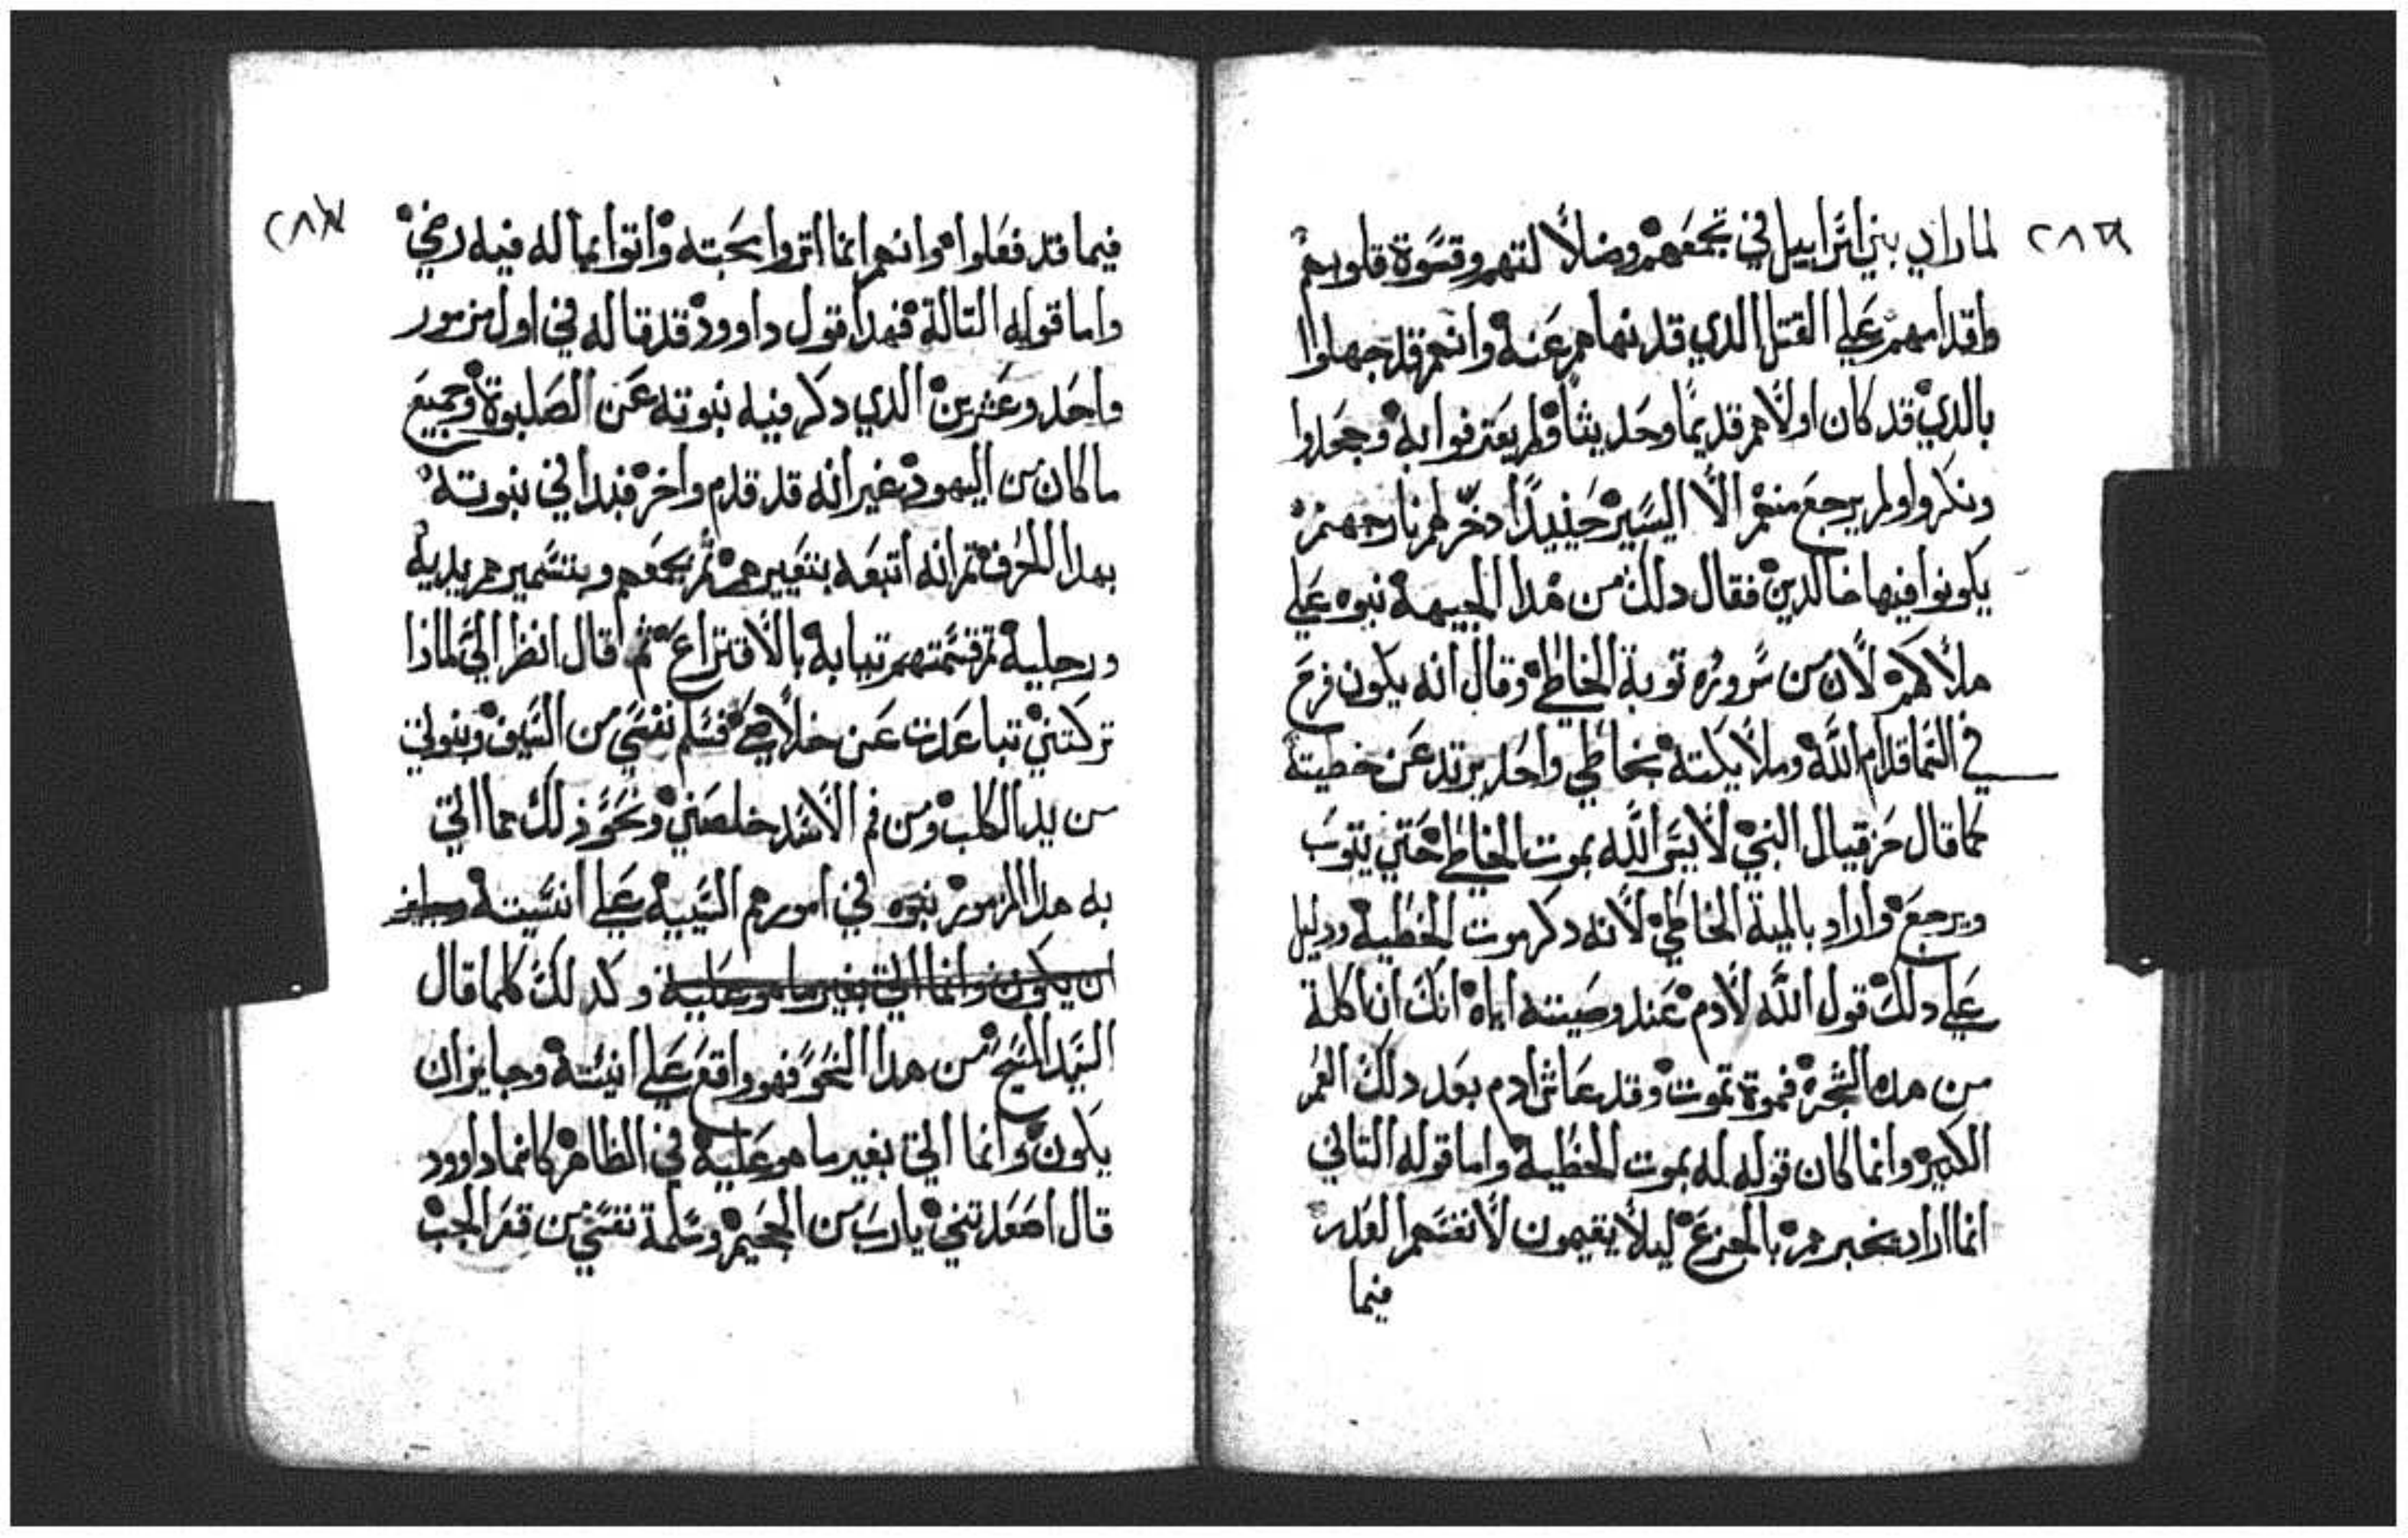 لما راي بني اسراييل في تجمعهم وضلالتهم وقسوة قلوبهم
واقدامهم علي القتل الدي قد نهاهم عنه وانهم قد جهلوا
بالدي قد كان اولاهم قديما وحديثا ولم يعترفوا به وجحدوا
ونكروا ولم يرجع منهم الا اليسير حينيدا دخر لهم نار جهنم
يكونوا فيها خالدين فقال دلك من هدا الجيهة نبوه علي
هلاكهم لان من سروره توبة الخاطي وقال انه يكون فرح
في السما قدام الله وملايكته بخاطي واحد يرتد عن خطيته
كما قال حزقيال النبي لا يسر الله بموت الخاطي حتي يتوب
ويرجع واراد بالميتة الخاطي لانه دكر موت الخطية ودليل
علي دلك قول الله لادم عند وصيته اياه انك ان اكلة
من هده الشجرة فموة تموت وقد عاش ادم بعد دلك العمر
الكبير وانما كان قوله له بموت الخطية واما قوله التاني
انما اراد بخبرهم بالجزع ليلا يقيمون لانفسهم العدر
فيما
فيما قد فعلوا وانهم انما اتروا بحجته واتوا بما له فيه رضي
واما قوله التالة فهدا قول داوود قد قاله في اول مزمور
واحد وعشرين الدي دكر فيه نبوته عن الصلبوة وجميع
ما كان من اليهود غير انه قد قدم واخر فبدا في نبوته
بهدا الحرف تم انه اتبعه بتعييرهم تم بجمعهم وبتسميرهم يديه
ورجليه تم قسمتهم تيابه بالاقتراع ثم قال انظر الي لماذا
تركتني تباعدت عن خلاصي فسلم نفسي من السيف وبنوتي
من يد الكلب ومن فم الاسد خلصني ونحو ذلك مما اتي
به هدا المزمور نبوه في امورهم السيية علي انسيته وجايز
ان يكون وانما اتي بغير ما هو عليه وكدلك كلما قال
السيد المسيح من هدا النحو فهو واقع علي انيسته وجايز ان
يكون وانما اتي بغير ما هو عليه في الظاهر كانما داوود
قال اصعدتني يا رب من الجحيم وسلمة نفسي من قعر الجب